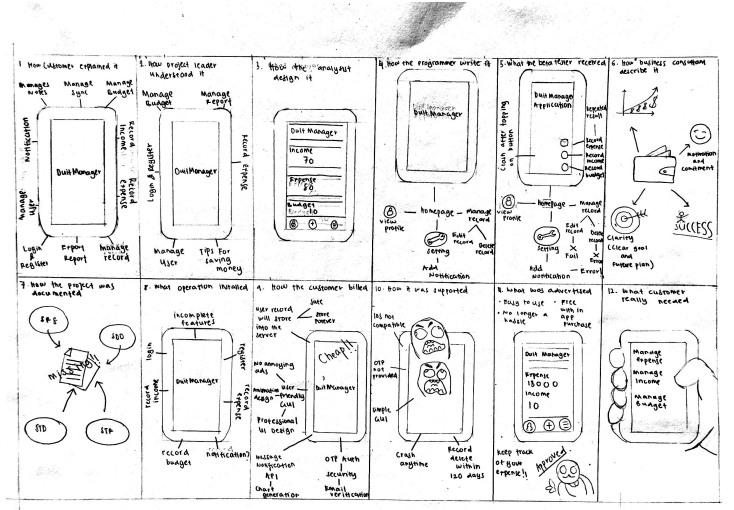 1. How Customer explained it
Manages Notes
Manage Sync
Manage Budget
Notification
Record Income
DuitManager
Record Expense
Manage User
Login & Register
Export Report
Manage record
2. How project leader understood it
Manage Budget
Manage Report
Login & Register
Record Expense
DuitManager
Manage User
Tips For saving money
3. How the analyst design it
Duit Manager
Income
70
Expense
80
Budget
10
4. How the programmer write it
Duit Manager
homepage
Manage record
view profile
Edit record
Delete record
setting
Add Notification
5. What the beta tester received
Duit Manager Application
Crash after tapping on button
Expected result
Record Expense
Record Income
Record budget
homepage
Manage record
view profile
Edit record
Fail
Error
setting
Add Notification
Error!
6. How business consultant describe it
motivation and commitment
Clarity
(Clear goal and future plan)
SUCCESS
7. How the project was documented
SRS
SDD
STD
STR
8. What operation installed
incomplete features
login
register
DuitManager
record income
record expense
record budget
notification)
9. How the customer billed
user record will store into the server
safe
store forever
Cheap!!
No annoying ads
Animation design
User friendly GUI
DuitManager
Professional UI Design
message Notification
API
Chart generation
OTP Auth
security
Email verification
10. How it was supported
IOS not compatible
OTP not provided
simple GUI
Crash anytime
Record delete within 120 days
11. What was advertised
• Easy to use
• Free with in app purchase
• No longer a hassle
Duit Manager
Expense
18000
Income
10
Keep track of your expense!!
Approved
12. What customer really needed
Manage expense
Manage Income
Manage Budget